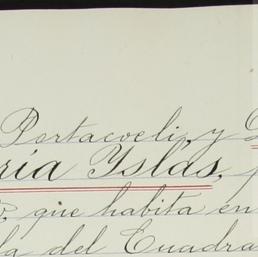 Portacoeli, y
ría Yslas,
que habita en
la del Cuadra